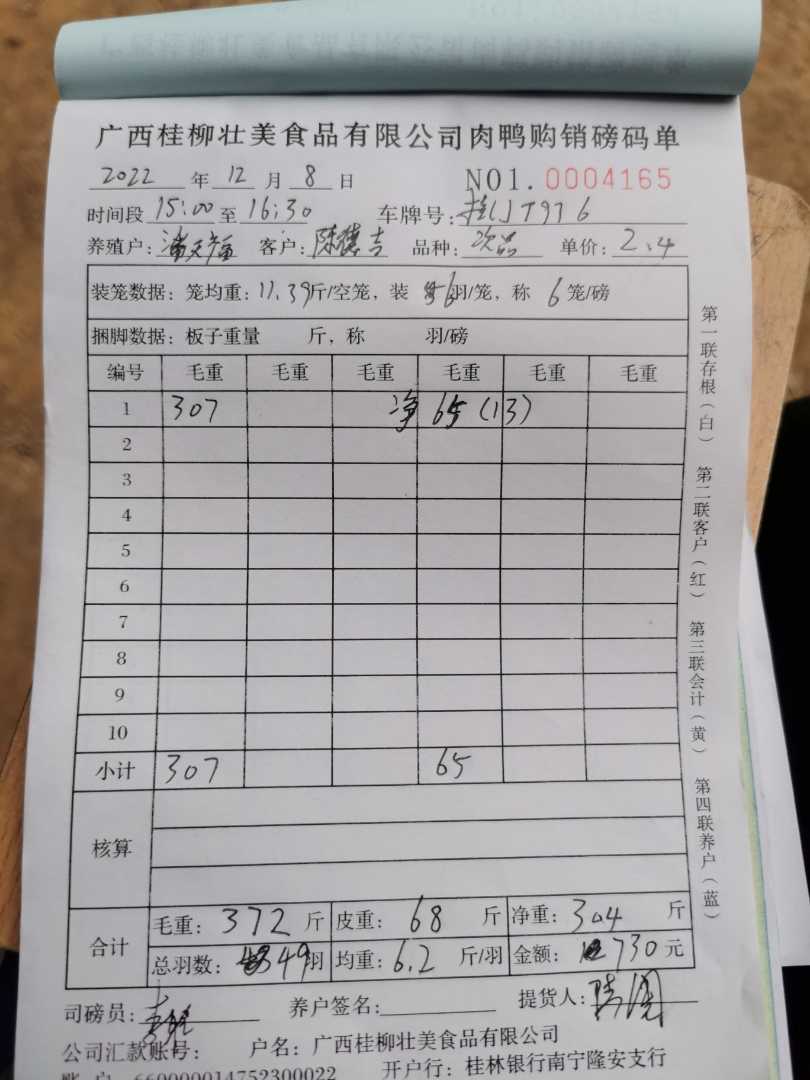 广西桂柳壮美食品有限公司肉鸭购销磅码单
2022 年 12 月 8 日 NO1.0004165
时间段 15:00 至 16:30 车牌号: 桂JT976
养殖户: 客户: 陈德吉 品种: 次品 单价: 2.4
装笼数据: 笼均重: 11.39斤/空笼, 装 6羽/笼, 称 6 笼/磅
捆脚数据: 板子重量 斤, 称 羽/磅
编号 毛重 毛重 毛重 毛重 毛重 毛重
1 307 净 65 (13)
2
3
4
5
6
7
8
9
10
小计 307 65
核算
合计
毛重: 372 斤 皮重: 68 斤 净重: 304 斤
总羽数: 49羽 均重: 6.2 斤/羽 金额: 730 元
司磅员: 养户签名: 提货人:
公司汇款账号: 户名: 广西桂柳壮美食品有限公司
账户 660000014752300022 开户行: 桂林银行南宁隆安支行
第一联存根(白) 第二联客户(红) 第三联会计(黄) 第四联养户(蓝)